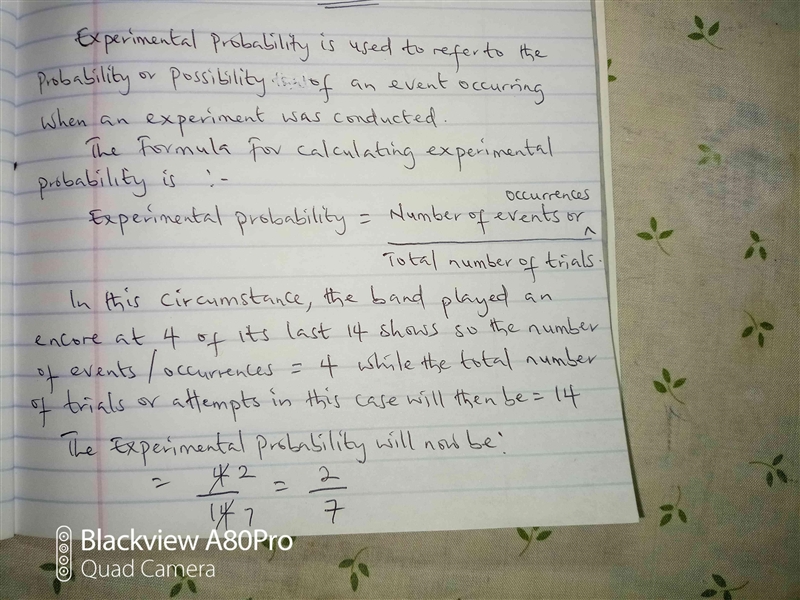 Experimental Probability is used to refer to the
Probability or Possibility of an event occurring
when an experiment was conducted.
The Formula For calculating experimental
probability is :-
occurrences
Experimental probability = Number of events or ^
Total number of trials.
In this circumstance, the band played an
encore at 4 of its last 14 shows so the number
of events/occurrences = 4 while the total number
of trials or attempts in this case will then be = 14
The Experimental Probability will now be:
= 4 2 = 2
14 7 7
Blackview A80Pro
Quad Camera